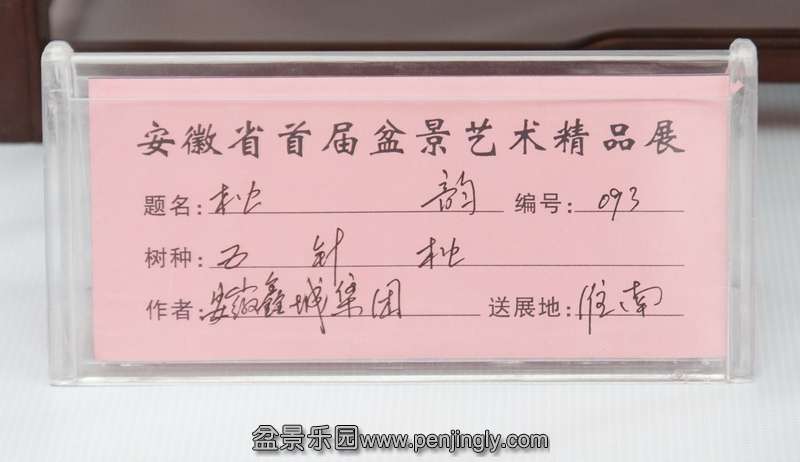 安徽省首届盆景艺术精品展
题名: 松 韵 编号: 093
树种: 五 针 松
作者: 安徽鑫城集团 送展地: 淮南
盆景乐园www.penjingly.com